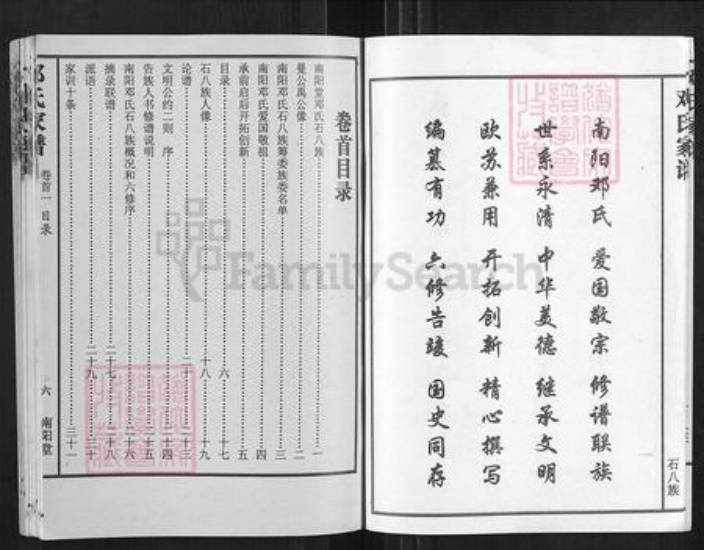 邓氏家谱
石八族
南阳邓氏 爱国敬宗 修谱联族
世系永清 中华美德 继承文明
欧苏兼用 开拓创新 精心撰写
编纂有功 六修告竣 国史同存
卷首目录
南阳堂邓氏石八族 一
曼公禹公像 二
南阳邓氏石八族筹委族委名单 三
南阳邓氏爱国敬祖 四
承前启后开拓创新 五
目录 六 十七
石八族人像 十八 十九
论谱 二十 二十三
文明公约二则 序 二十四
告族人书修谱说明 二十五
南阳邓氏石八族概况和六修序 二十六
摘录联谱 二十七 二十八
派语 二十九 三十
家训十条 三十一
邓氏家谱 卷首一 目录 六 南阳堂
FamilySearch